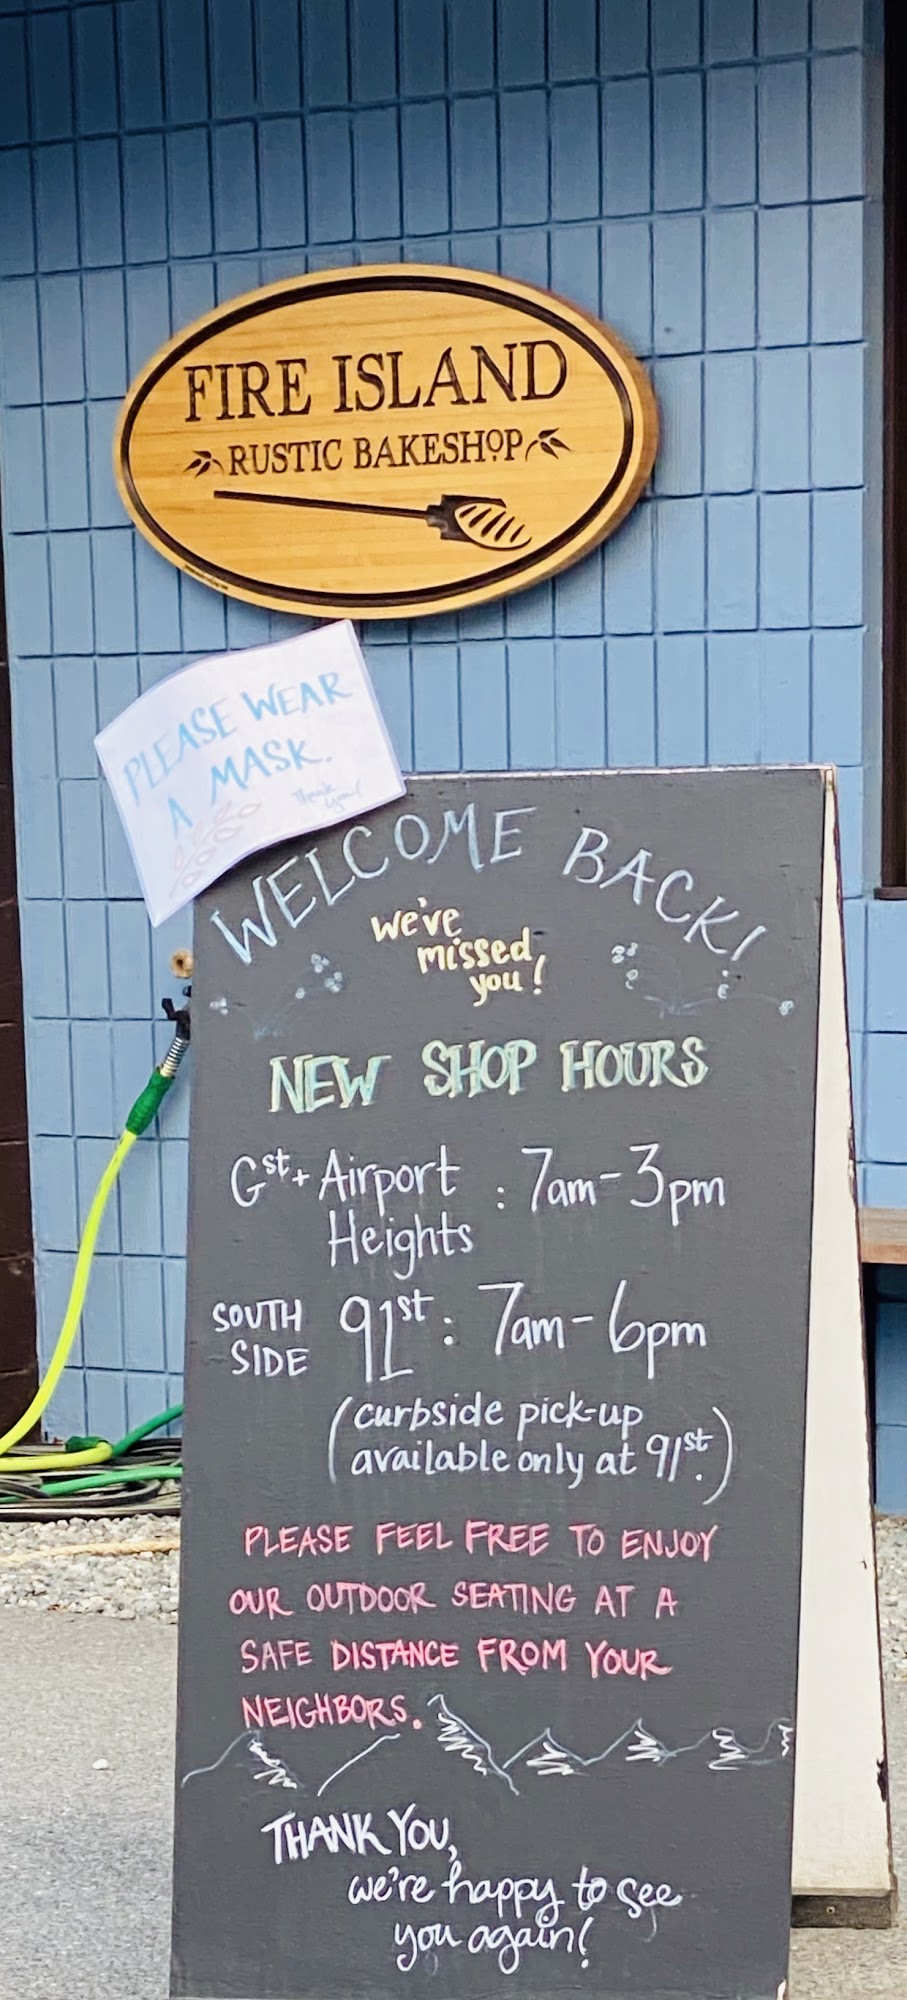 FIRE ISLAND
RUSTIC BAKESHOP
PLEASE WEAR
A MASK.
Thank
you!
WELCOME BACK!
we've
missed
you!
NEW SHOP HOURS
Gst + Airport : 7am-3pm
Heights
SOUTH SIDE 91st : 7am-6pm
(curbside pick-up
available only at 91st.)
PLEASE FEEL FREE TO ENJOY
OUR OUTDOOR SEATING AT A
SAFE DISTANCE FROM YOUR
NEIGHBORS.
THANK YOU,
we're happy to see
you again!